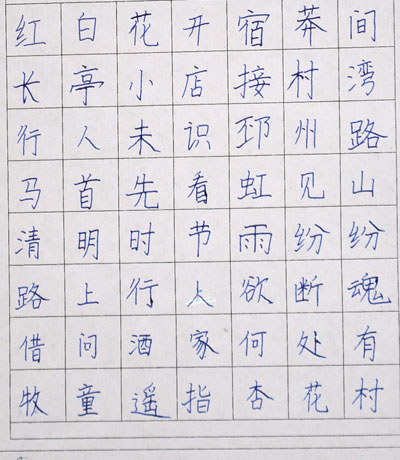 红白花开宿莽间
长亭小店接村湾
行人未识邳州路
马首先看虹见山
清明时节雨纷纷
路上行人欲断魂
借问酒家何处有
牧童遥指杏花村